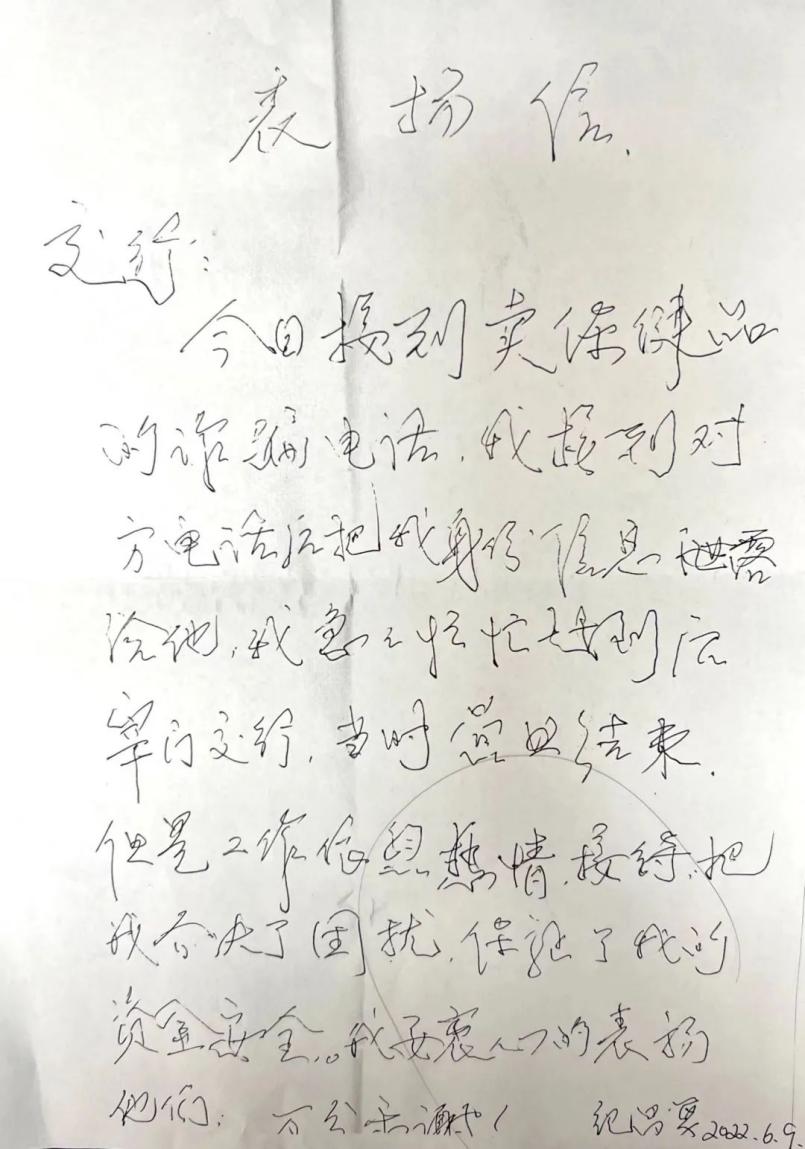 表扬信.
交行：
今日接到卖保健品
的诈骗电话，我接到对
方电话后把我身份信息泄露
给他，我急急忙忙赶到后
宰门交行，当时营业结束.
但是工作依然热情接待，把
我解决了困扰，保证了我的
资金安全。我要衷心的表扬
他们，万分感谢！ 纪 2022.6.9.